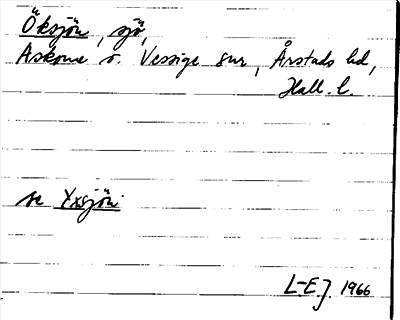 Öksjön, sjö,
Askome o. Vessige snr, Årstads hd,
Hall. l.
se Yxsjön
L-EJ. 1966